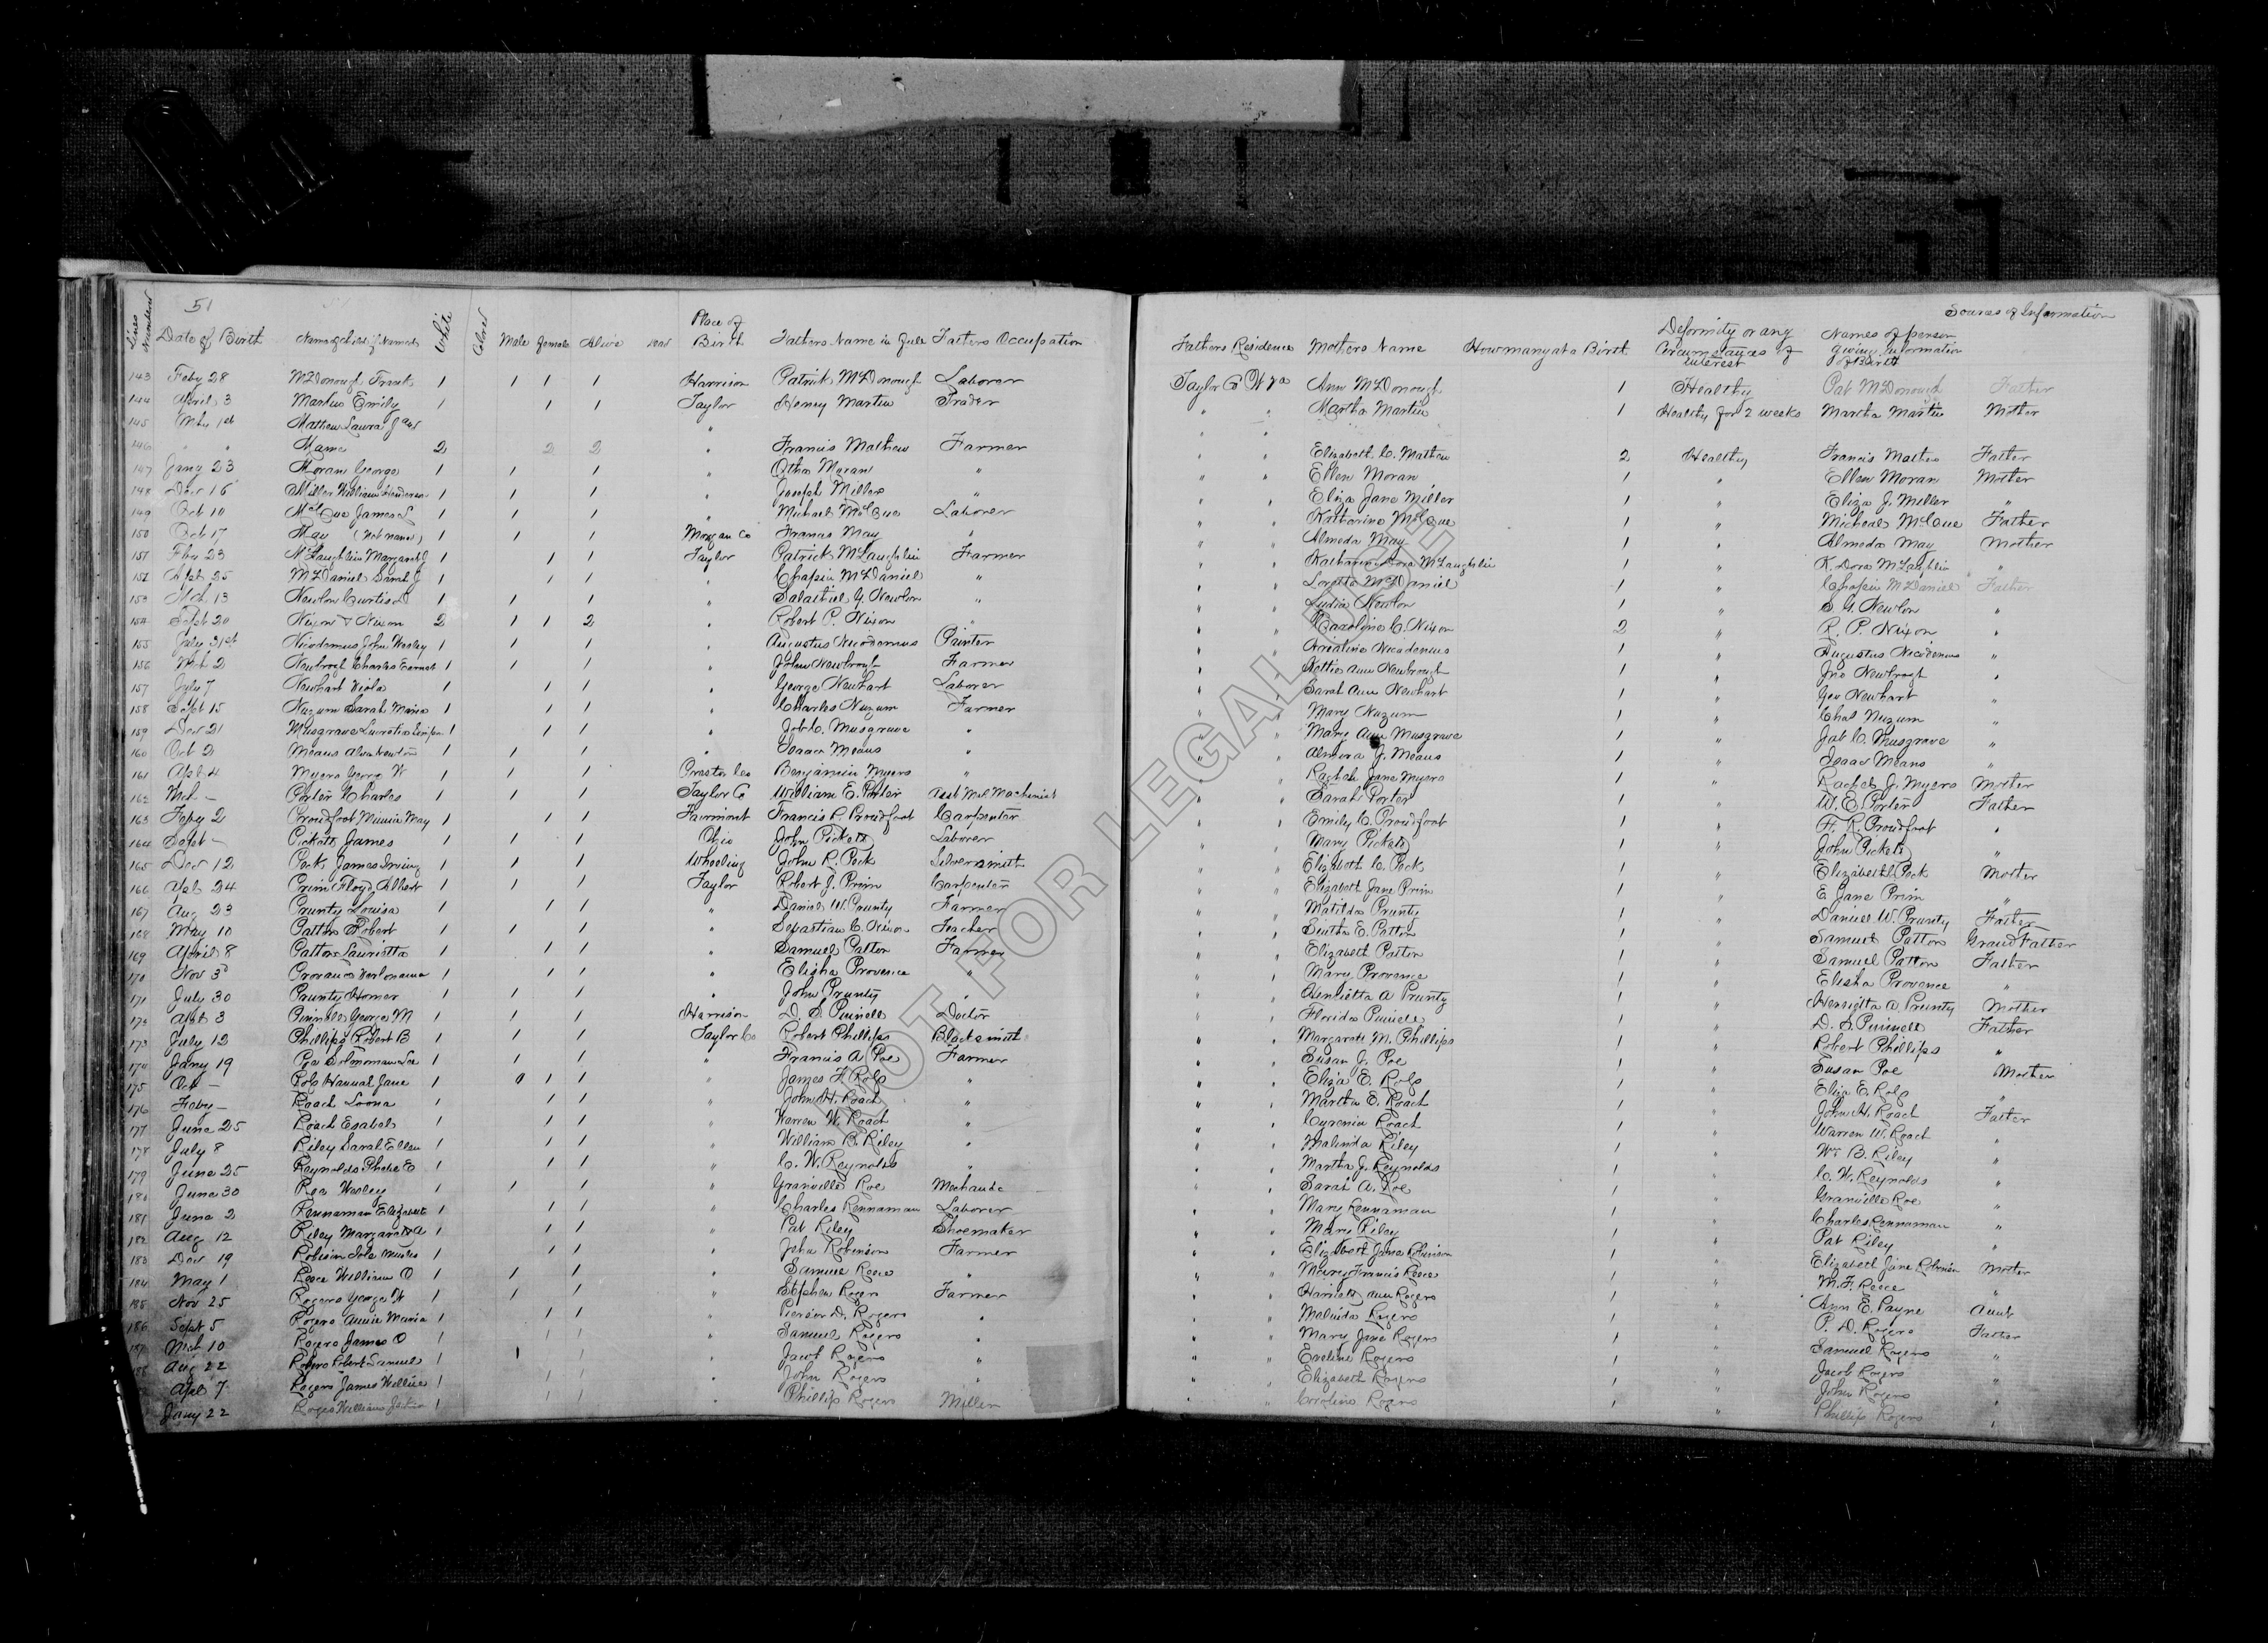 51
Sources of Information
Lines Numbered Date of Birth Name of Child if Named White Colored Male Female Alive Dead Place of Birth Fathers Name in full Fathers Occupation Fathers Residence Mothers Name How many at a Birth Deformity or any Circumstances of interest Names of person giving information of Birth
143 Feby 28 McDonough Frank 1 1 1 1 Harrison Patrick McDonough Laborer Taylor Co W Va Ann McDonough 1 Healthy Pat McDonough Father
144 April 3 Emily 1 1 1 Taylor Henry Martin Trader " " Martha Martin 1 Healthy for 2 weeks Martha Martin Mother
145 Mch 1st Mathew Laura J and " " "
146 " " 2 2 2 " Francis Mathew Farmer " " Elizabeth C. Mathew 2 Healthy Francis Mathew Father
147 Jany 23 Moran George 1 1 1 " Otho Moran " " " Ellen Moran 1 " Ellen Moran Mother
148 Dec 16 Miller William Henderson 1 1 1 " Joseph Miller " " " Eliza Jane Miller 1 " Eliza J. Miller "
149 Oct 10 McCue James L 1 1 1 " Michael McCue Laborer " " Katharine McCue 1 " Micheal McCue Father
150 Oct 17 May (Not named) 1 1 1 Morgan Co Francis May " " " Almeda May 1 " Almeda May Mother
151 Fby 23 McLaughlin Margaret J 1 1 1 Taylor Patrick McLaughlin Farmer " " Katharine Dora McLaughlin 1 " K. Dora McLaghlin "
152 Apl 25 McDaniel Sarah J 1 1 1 " Chapin McDaniel " " " Loretta McDaniel 1 " Chapin McDaniel Father
153 Mch 13 Newlon Curtis D 1 1 1 " Salathiel G. Newlon " " " Lydia Newlon 1 " S. G. Newlon "
154 Sept 20 Nixon & Nixon 2 1 1 2 " Robert P. Nixon " " Caroline C. Nixon 2 " R. P. Nixon "
155 July 31st Nicodemus John Wesley 1 1 1 " Augustus Nicodemus Painter " " Nicodemus 1 " Augustus Nicodemus "
156 Mch 2 Newbrogh Charles Earnest 1 1 1 " John Newbrogh Farmer " " Hettie Ann Newbrough 1 " Jno Newbrogh "
157 July 7 Newhart Viola 1 1 1 " George Newhart Laborer " " Sarah Ann Newhart 1 " Geo Newhart "
158 Sept 15 Nuzum Sarah Maria 1 1 1 " Charles Nuzum Farmer " " Mary Nuzum 1 " Chas Nuzum "
159 Dec 21 Musgrave Lucretia 1 1 1 " Job C. Musgrave " " " Mary Ann Musgrave 1 " Job C. Musgrave "
160 Oct 2 Means Alva Newton 1 1 1 " Isaac Means " " " Almira J. Means 1 " Isaac Means "
161 Apl 4 Myers George W 1 1 1 Preston Co Benjamin Myers " " " Rachel Jane Myers 1 " Rachel J. Myers Mother
162 Mch – Porter Charles 1 1 1 Taylor Co William E. Porter Asst Machinist " " Sarah Porter 1 " W. E. Porter Father
163 Feby 2 Proudfoot Minnie May 1 1 1 Fairmont Francis R. Proudfoot Carpenter " " Emily C. Proudfoot 1 " F. R. Proudfoot "
164 Sept – Pickett James 1 1 1 Ohio John Pickett Laborer " " Mary Pickett 1 " John Pickett "
165 Dec 12 Peck James Irving 1 1 1 Wheeling John R. Peck Silversmith " " Elizabeth C. Peck 1 " Elizabeth Peck Mother
166 Apl 24 Prim Floyd Albert 1 1 1 Taylor Robert J. Prim Carpenter " " Elizabeth Jane Prim 1 " E Jane Prim "
167 Aug 23 Prunty Louisa 1 1 1 " Daniel W. Prunty Farmer " " Matilda Prunty 1 " Daniel W. Prunty Father
168 May 10 Patton Robert 1 1 1 " Sebastian C. Teacher " " E. Patton 1 " Samuel Patton Grand Father
169 April 8 Patton Laurietta 1 1 1 " Samuel Patton Farmer " " Elizabeth Patton 1 " Samuel Patton Father
170 Nov 3 1 1 1 " Elisha Provence " " " Mary Provence 1 " Elisha Provence "
171 July 30 Prunty Homer 1 1 1 " John Prunty " " " Henrietta A Prunty 1 " Henrietta A Prunty Mother
172 Apl 3 Pinnell George M 1 1 1 Harrison D. S. Pinnell Doctor " " Florida Pinnell 1 " D. S. Pinnell Father
173 July 12 Phillips Robert B 1 1 1 Taylor Co Robert Phillips Blacksmith " " Margarett M. Phillips 1 " Robert Phillips "
174 Jany 19 Poe Solmoman Lee 1 1 1 " Francis A. Poe Farmer " " Susan J. Poe 1 " Susan Poe Mother
175 Oct – Rolf Hannah Jane 1 1 1 " James F. Rolf " " " Eliza E. Rolf 1 " Eliza E. Rolf "
176 Feby – Roach Loona 1 1 1 " John H. Roach " " " Martha E. Roach 1 " John H. Roach Father
177 June 25 Roach Esabel 1 1 1 " Warren W. Roach " " " Cyrenia Roach 1 " Warren W. Roach "
178 July 8 Riley Sarah Ellen 1 1 1 " William B. Riley " " " Malinda Riley 1 " Wm B. Riley "
179 June 25 Reynolds Phebe E 1 1 1 " C. W. Reynolds " " " Martha J. Reynolds 1 " C. W. Reynolds "
180 June 30 Roe Wesley 1 1 1 " Granville Roe Mechanic " " Sarah A. Roe 1 " Granville Roe "
181 June 2 Rennaman Elizabeth 1 1 1 " Charles Rennaman Laborer " " Mary Rennaman 1 " Charles Rennaman "
182 Aug 12 Riley Margaret A 1 1 1 " Pat Riley Shoemaker " " Mary Riley 1 " Pat Riley "
183 Dec 19 Robison 1 1 1 " John Robinson Farmer " " Elizabeth Jane Robinson 1 " Elizabeth Jane Robinson Mother
184 May 1 Reece William O 1 1 1 " Samuel Reece " " " Mary Francis Reece 1 " M. F. Reece "
185 Nov 25 Rogers George W 1 1 1 " Stephen Rogers Farmer " " Harriett Ann Rogers 1 " Ann E. Payne Aunt
186 Sept 5 Rogers Annie Maria 1 1 1 " Pierson D. Rogers " " " Malinda Rogers 1 " P. D. Rogers Father
187 Mch 10 Rogers James O 1 1 1 " Samuel Rogers " " " Mary Jane Rogers 1 " Samuel Rogers "
188 Aug 22 Rogers Robert Samuel 1 1 1 " Jacob Rogers " " " Eveline Rogers 1 " Jacob Rogers "
Apl 7 Rogers James William 1 1 1 " John Rogers " " " Elizabeth Rogers 1 " John Rogers "
Jany 22 Rogers William 1 1 1 " Phillip Rogers Miller " " Caroline Rogers 1 " Phillip Rogers "
NOT FOR LEGAL USE